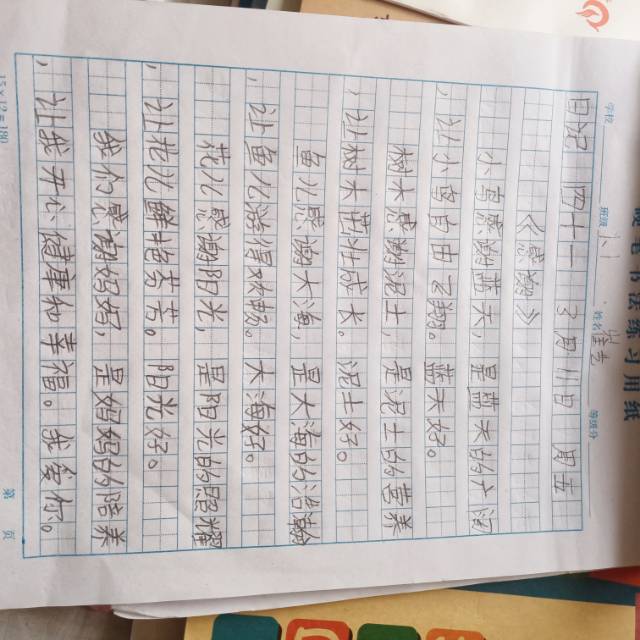 硬笔书法练习用纸
学校 班级 姓名 等级分
日记 四十一 3月11日 周五
《感恩》
小鸟感谢蓝天,是蓝天的
让小鸟自由飞翔。蓝天好。
树木感谢泥土,是泥土的营养
让树木成长。泥土好。
鱼儿感谢大海,是大海的浩瀚
让鱼儿游得畅快。大海好。
花儿感谢阳光,是阳光的温暖
让花儿鲜艳芬芳。阳光好。
我们感谢妈妈,是妈妈的培养
让我开心健康和幸福。我爱你。
15×12=180 第 页